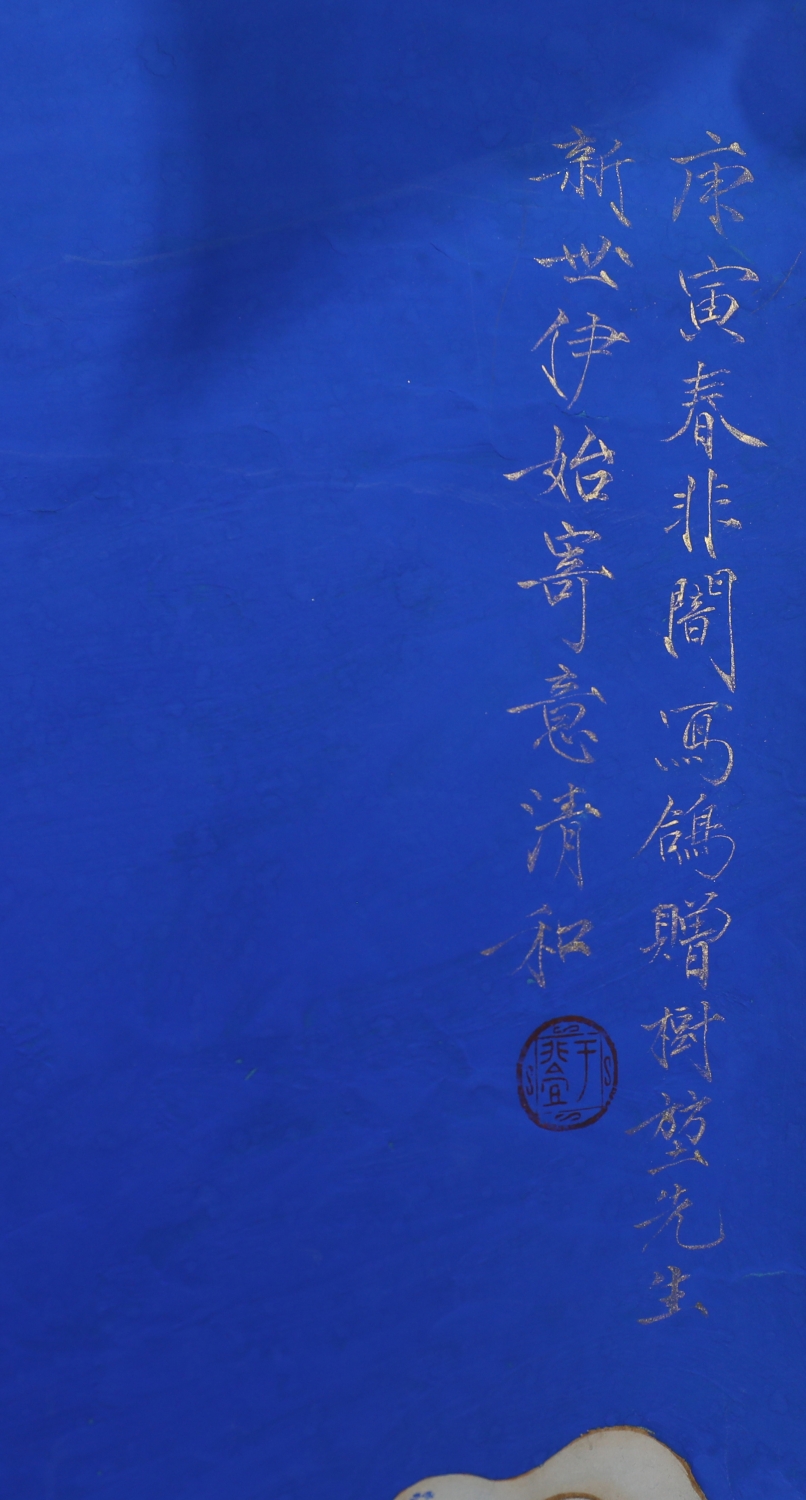 庚寅春非闇寫鴿贈樹堃先生
新世伊始寄意清和
于非